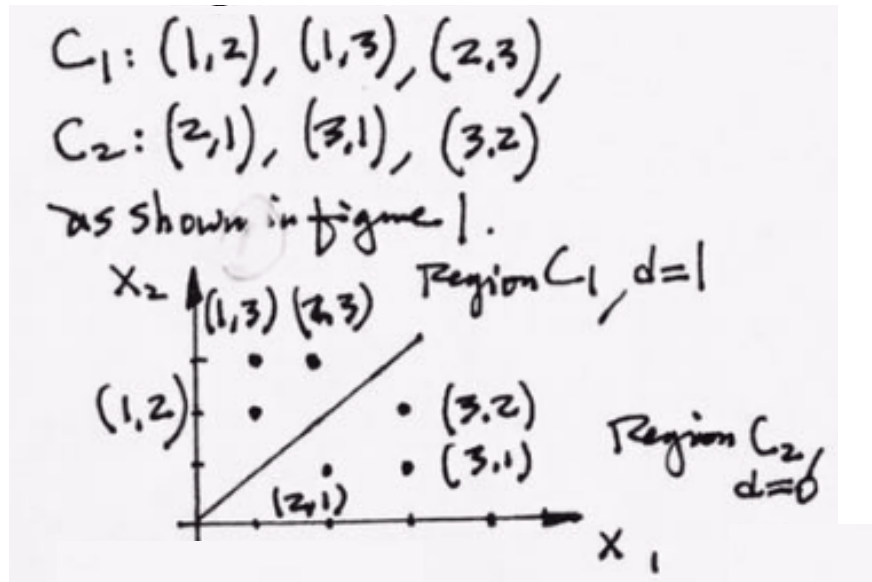 C1: (1,2), (1,3), (2,3),
C2: (2,1), (3,1), (3,2)
as shown in figure 1.
X2
(1,3) (2,3)
Region C1, d=1
(1,2)
(3,2)
(3,1)
Region C2,
d=0
(2,1)
X1